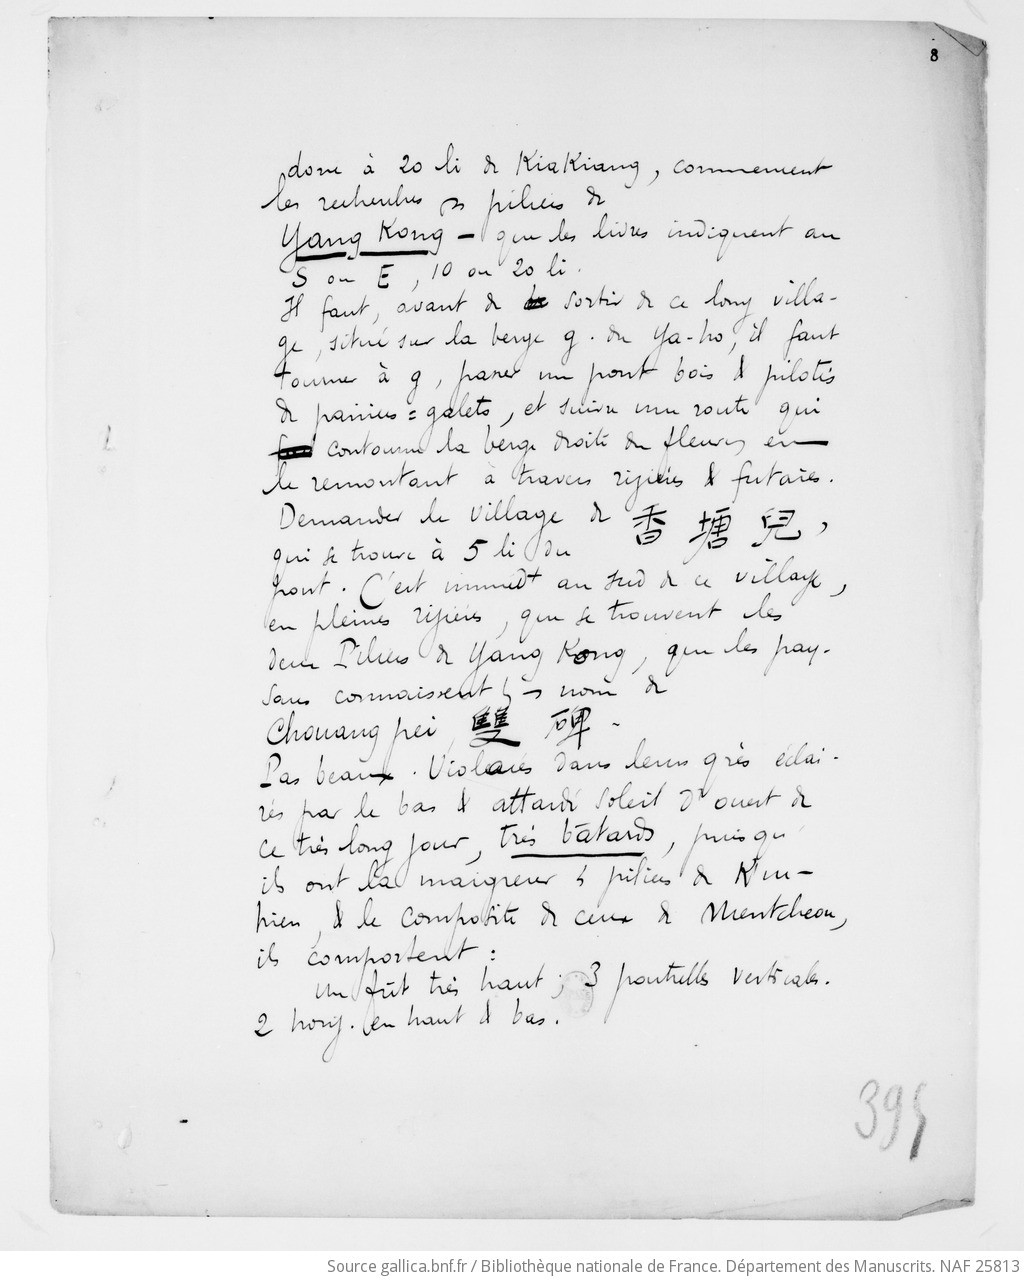 8
donc à 20 li de KiaKiang, commencent
les recherches des piliers de
Yang Kong – que les livres indiquent au
S ou E, 10 ou 20 li.
Il faut, avant de sortir de ce long villa-
ge, situé sur la berge g. du Ya-ho, il faut
tourner à g, passer un pont bois & pilotis
de paniers = galets, et suivre une route qui
contourne la berge droite du fleuve, en
le remontant à travers rizières & futaies.
Demander le village de 香 塘 兒,
qui se trouve à 5 li du
pont. C'est immedt au sud de ce village,
en pleines rizières, que se trouvent les
deux Piliers de Yang Kong, que les pay-
sans connaissent le nom de
Chouang pei, 雙 碑 .
Pas beaux. Violacés dans leurs grès éclai-
rés par le bas & attardé soleil d'ouest de
ce très long jour, très bâtards, puisqu'
ils ont la maigreur piliers de K'iu-
hien, & le composite de ceux de Mientcheou,
ils comportent :
un fût très haut ; 3 poutrelles verticales.
2 horiz. en haut & bas.
395
Source gallica.bnf.fr / Bibliothèque nationale de France. Département des Manuscrits. NAF 25813